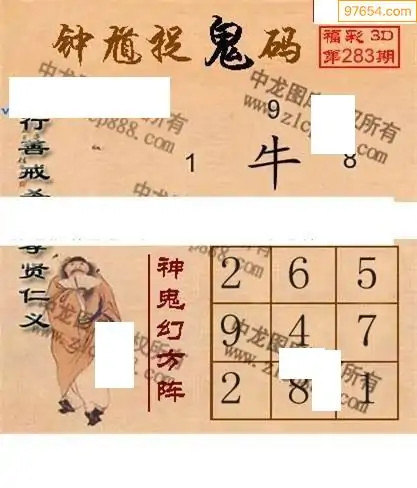 97654.com
钟馗捉鬼码
福彩3D
第283期
行善戒
尊贤仁义
9
1 牛 8
神鬼幻方阵
2 6 5
9 4 7
2 8 1
中龙图库版权所有
www.zlcp888.com